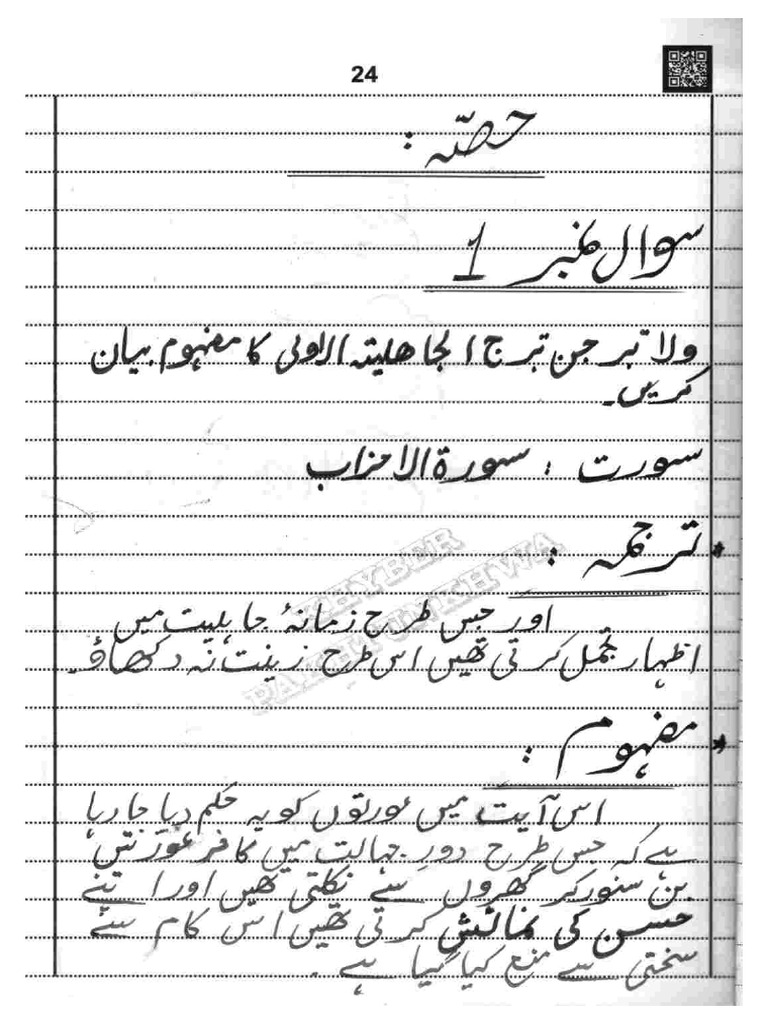 24
حصّہ :
سوال نمبر 1
ولا تبرجن تبرج الجاھلیتہ الاولی کا مفہوم بیان
کریں۔
سورت : سورۃ الاحزاب
* ترجمہ :
اور جس طرح زمانۂ جاہلیت میں
اظہار تجمل کرتی تھیں اس طرح زینت نہ دکھاؤ۔
* مفہوم :
اس آیت میں عورتوں کو یہ حکم دیا جا رہا
ہے کہ جس طرح دورِ جہالت میں کافر عورتیں
بن سنور کر گھروں سے نکلتی تھیں اور اپنے
حسن کی نمائش کرتی تھیں اس کام سے
سختی سے منع کیا گیا ہے۔
KHYBER
PAKHTUNKHWA